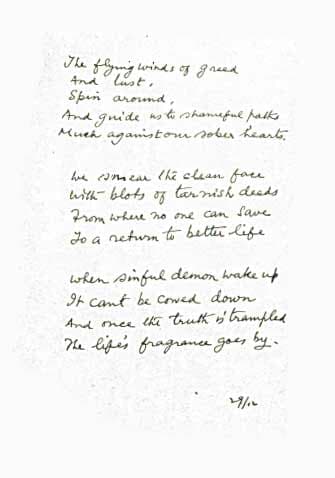 The flying winds of greed
And lust,
Spin around,
And guide us to shameful paths
Much against our sober hearts.
We smear the clean face
With blots of tarnish deeds
From where no one can save
To a return to better life
When sinful demon wake up
It cant be cowed down
And once the truth is trampled
The life's fragrance goes by.
29/12